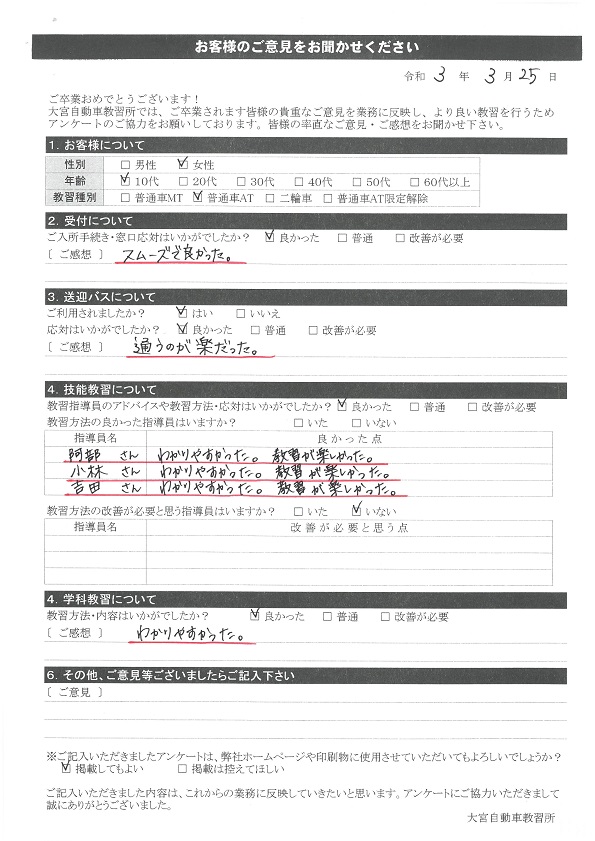 お客様のご意見をお聞かせください
令和 3 年 3 月 25 日
ご卒業おめでとうございます！
大宮自動車教習所では、ご卒業されます皆様の貴重なご意見を業務に反映し、より良い教習を行うため
アンケートのご協力をお願いしております。皆様の率直なご意見・ご感想をお聞かせ下さい。
1．お客様について
性別 □ 男性 ☑ 女性
年齢 ☑ 10代 □ 20代 □ 30代 □ 40代 □ 50代 □ 60代以上
教習種別 □ 普通車MT ☑ 普通車AT □ 二輪車 □ 普通車AT限定解除
2．受付について
ご入所手続き・窓口応対はいかがでしたか？ ☑ 良かった □ 普通 □ 改善が必要
［ ご感想 ］ スムーズで良かった。
3．送迎バスについて
ご利用されましたか？ ☑ はい □ いいえ
応対はいかがでしたか？ ☑ 良かった □ 普通 □ 改善が必要
［ ご感想 ］ 通うのが楽だった。
4．技能教習について
教習指導員のアドバイスや教習方法・応対はいかがでしたか？ ☑ 良かった □ 普通 □ 改善が必要
教習方法の良かった指導員はいますか？ □ いた □ いない
指導員名 良かった点
阿部 さん わかりやすかった。教習が楽しかった。
小林 さん わかりやすかった。教習が楽しかった。
吉田 さん わかりやすかった。教習が楽しかった。
教習方法の改善が必要と思う指導員はいますか？ □ いた ☑ いない
指導員名 改善が必要と思う点
4．学科教習について
教習方法・内容はいかがでしたか？ ☑ 良かった □ 普通 □ 改善が必要
［ ご感想 ］ わかりやすかった。
6．その他、ご意見等ございましたらご記入下さい
［ ご意見 ］
※ご記入いただきましたアンケートは、弊社ホームページや印刷物に使用させていただいてもよろしいでしょうか？
☑ 掲載してもよい □ 掲載は控えてほしい
ご記入いただきました内容は、これからの業務に反映していきたいと思います。アンケートにご協力いただきまして
誠にありがとうございました。
大宮自動車教習所